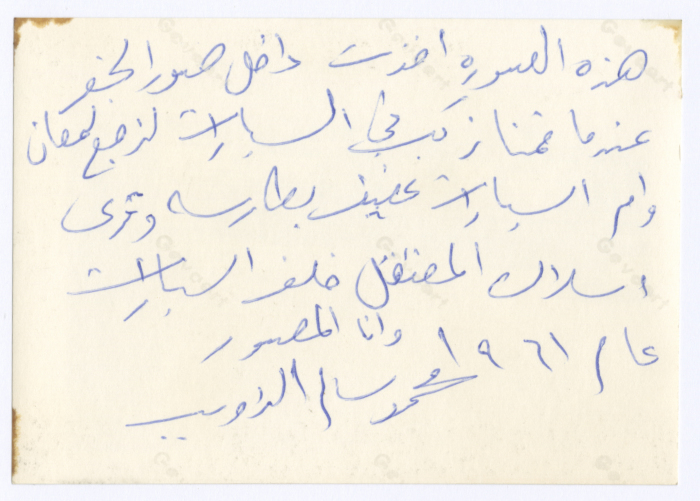 هذه الصورة اخذت داخل صور الجفر
عندما قمنا نركب في السيارات لنرجع لمعان
وام السيارات عفيف بطارسه وترى
اسلاك المعتقل خلف السيارات
وانا المصور
عام ١٩٦١ محمد سالم الذويب